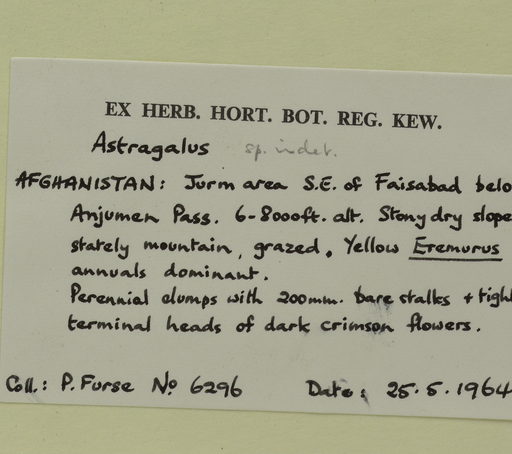 EX HERB. HORT. BOT. REG. KEW.
Astragalus sp. indet.
AFGHANISTAN: Jurm area S.E. of Faisabad belo
Anjumen Pass. 6-8000ft. alt. Stony dry slope
stately mountain, grazed. Yellow Eremurus
annuals dominant.
Perennial clumps with 200mm. bare stalks + tight
terminal heads of dark crimson flowers.
Coll.: P. Furse No 6296 Date: 25.5.1964